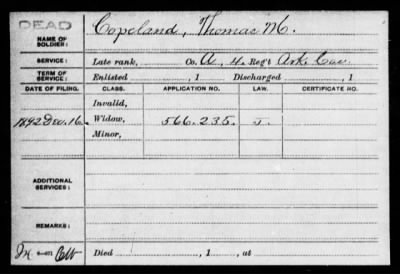 DEAD
NAME OF SOLDIER: Copeland, Thomas M.
SERVICE: Late rank, Co. A, 4. Reg't Ark. Cav.
TERM OF SERVICE: Enlisted , 1 Discharged , 1
DATE OF FILING. CLASS. APPLICATION NO. LAW. CERTIFICATE NO.
Invalid,
1892 Dec. 16. Widow, 566.235.
Minor,
ADDITIONAL SERVICES:
REMARKS:
Died , 1 , at